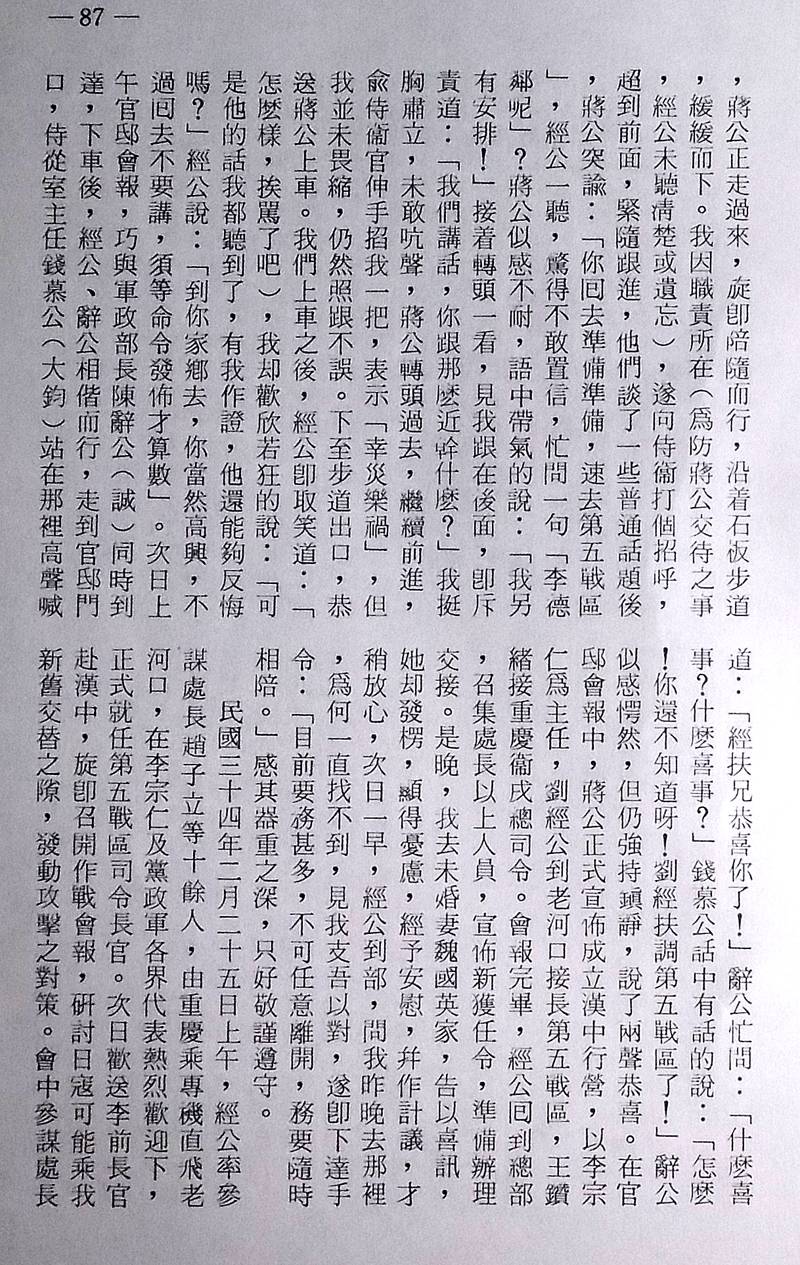 —87—
，蔣公正走過來，旋卽陪隨而行，沿着石板步道
，緩緩而下。我因職責所在（爲防蔣公交待之事
，經公未聽清楚或遺忘），遂向侍衞打個招呼，
超到前面，緊隨跟進，他們談了一些普通話題後
，蔣公突諭：「你回去準備準備，速去第五戰區
」，經公一聽，驚得不敢置信，忙問一句「李德
鄰呢」？蔣公似感不耐，語中帶氣的說：「我另
有安排！」接着轉頭一看，見我跟在後面，卽斥
責道：「我們講話，你跟那麽近幹什麽？」我挺
胸肅立，未敢吭聲，蔣公轉頭過去，繼續前進，
兪侍衞官伸手掐我一把，表示「幸災樂禍」，但
我並未畏縮，仍然照跟不誤。下至步道出口，恭
送蔣公上車。我們上車之後，經公卽取笑道：「
怎麽樣，挨罵了吧），我却歡欣若狂的說：「可
是他的話我都聽到了，有我作證，他還能夠反悔
嗎？」經公說：「到你家鄉去，你當然高興，不
過回去不要講，須等命令發佈才算數」。次日上
午官邸會報，巧與軍政部長陳辭公（誠）同時到
達，下車後，經公、辭公相偕而行，走到官邸門
口，侍從室主任錢慕公（大鈞）站在那裡高聲喊
道：「經扶兄恭喜你了！」辭公忙問：「什麽喜
事？什麽喜事？」錢慕公話中有話的說：「怎麽
！你還不知道呀！劉經扶調第五戰區了！」辭公
似感愕然，但仍強持鎭靜，說了兩聲恭喜。在官
邸會報中，蔣公正式宣佈成立漢中行營，以李宗
仁爲主任，劉經公到老河口接長第五戰區，王鑽
緒接重慶衞戍總司令。會報完畢，經公回到總部
，召集處長以上人員，宣佈新獲任令，準備辦理
交接。是晚，我去未婚妻魏國英家，告以喜訊，
她却發楞，顯得憂慮，經予安慰，幷作計議，才
稍放心，次日一早，經公到部，問我昨晚去那裡
，爲何一直找不到，見我支吾以對，遂卽下達手
令：「目前要務甚多，不可任意離開，務要隨時
相陪。」感其器重之深，只好敬謹遵守。
民國三十四年二月二十五日上午，經公率參
謀處長趙子立等十餘人，由重慶乘專機直飛老
河口，在李宗仁及黨政軍各界代表熱烈歡迎下，
正式就任第五戰區司令長官。次日歡送李前長官
赴漢中，旋卽召開作戰會報，研討日寇可能乘我
新舊交替之隙，發動攻擊之對策。會中參謀處長